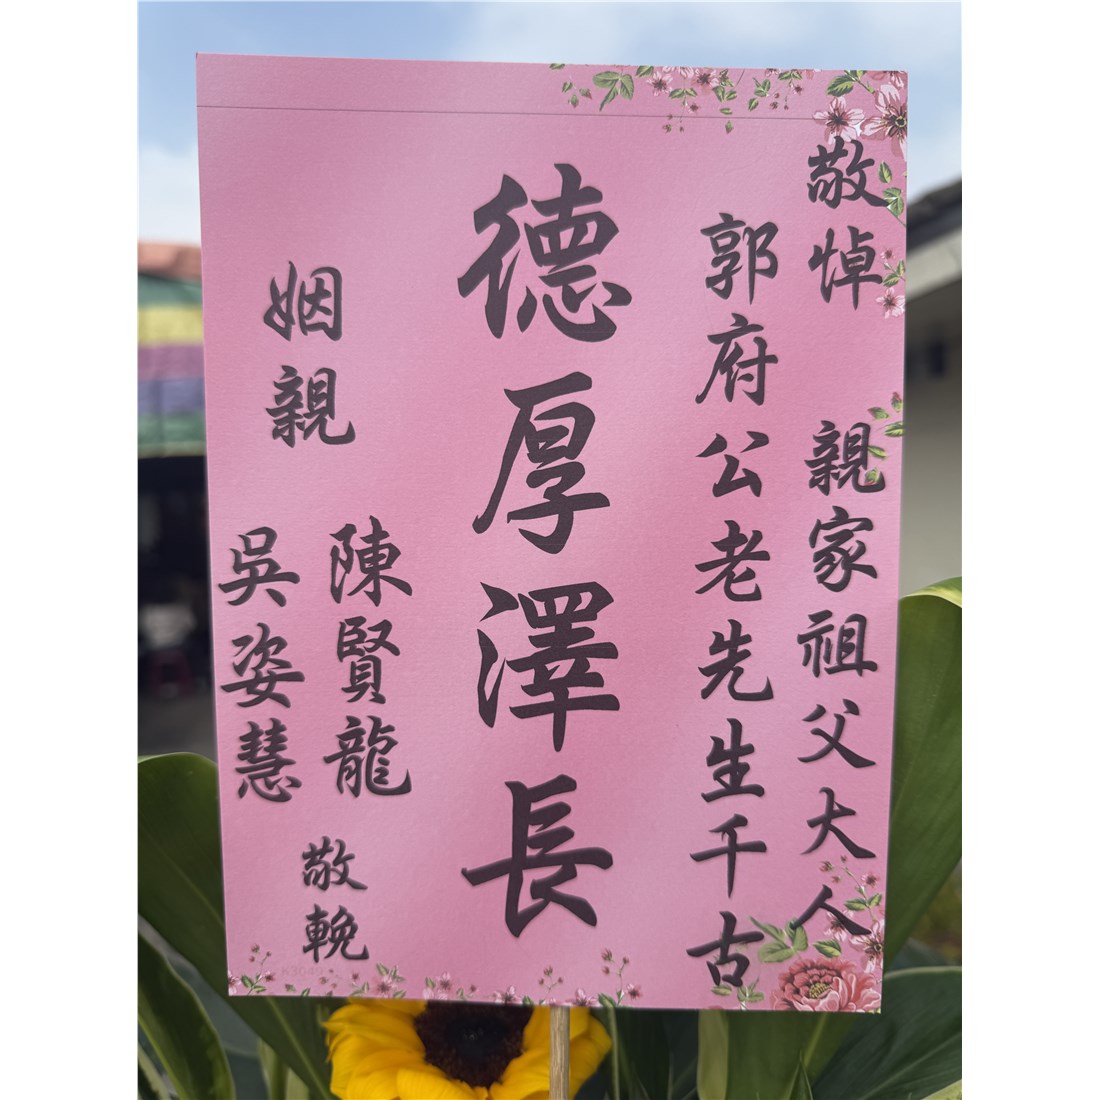 敬悼 親家祖父大人
郭府公老先生千古
德厚澤長
姻親 陳賢龍
吳姿慧
敬輓